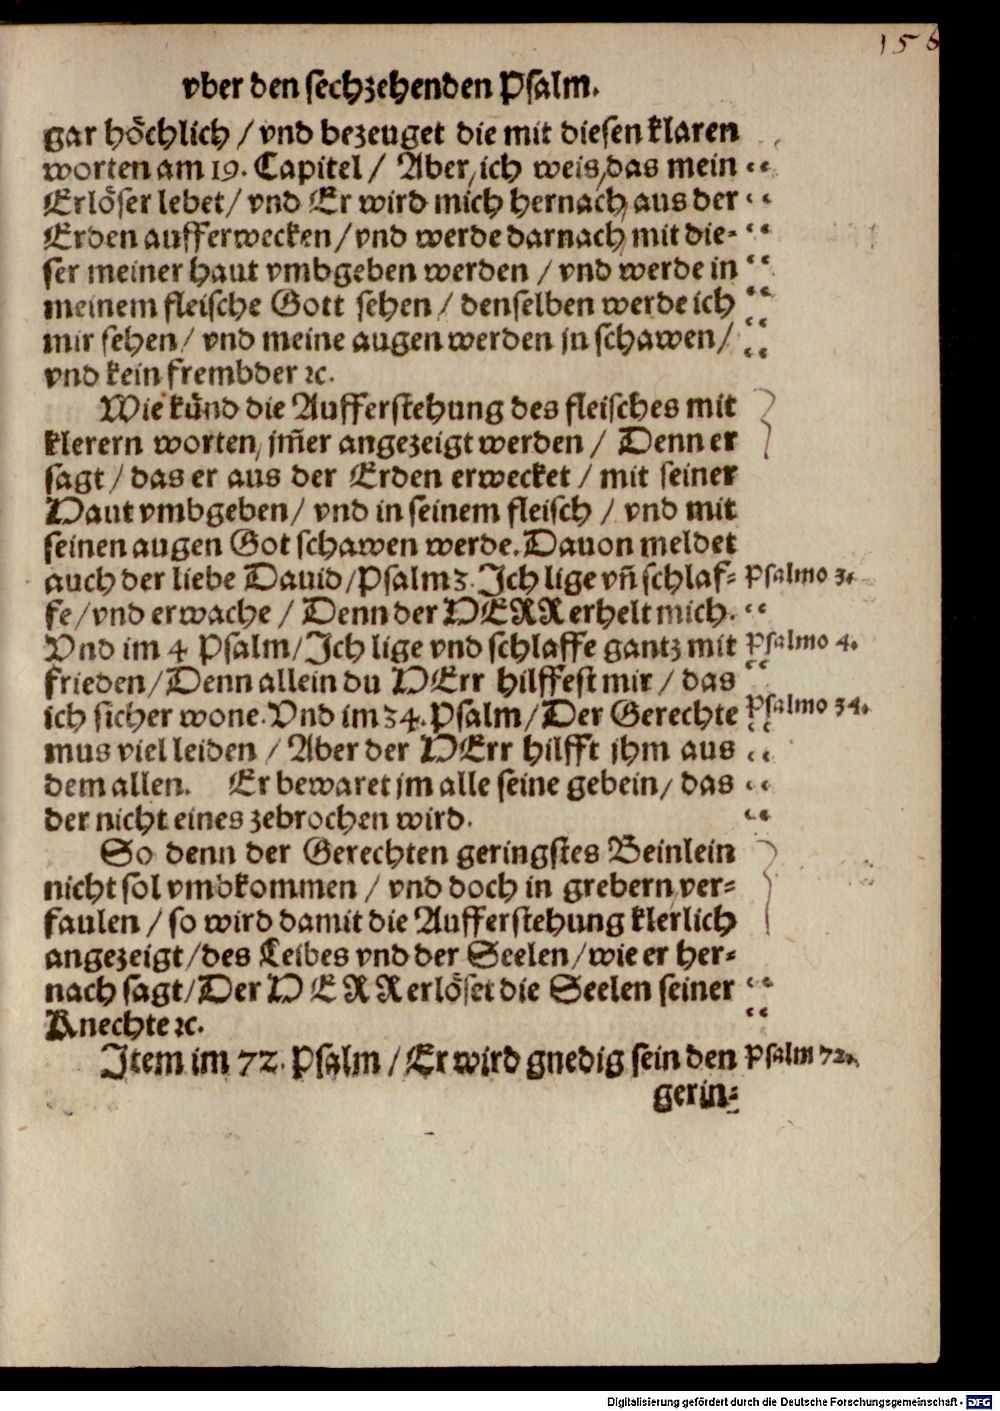 156
vber den sechzehenden Psalm.
gar höchlich / vnd bezeuget die mit diesen klaren
worten am 19. Capitel / Aber, ich weis, das mein
Erlöser lebet / vnd Er wird mich hernach aus der
Erden aufferwecken / vnd werde darnach mit die-
ser meiner haut vmbgeben werden / vnd werde in
meinem fleische Gott sehen / denselben werde ich
mir sehen / vnd meine augen werden jn schawen /
vnd kein frembder ꝛc.
Wie künd die Aufferstehung des fleisches mit
klerern worten, jm̃er angezeigt werden / Denn er
sagt / das er aus der Erden erwecket / mit seiner
Haut vmbgeben / vnd in seinem fleisch / vnd mit
seinen augen Got schawen werde. Dauon meldet
auch der liebe Dauid / Psalm 3. Ich lige vñ schlaf- Psalmo 3.
fe / vnd erwache / Denn der HERR erhelt mich.
Vnd im 4 Psalm / Ich lige vnd schlaffe gantz mit Psalmo 4.
frieden / Denn allein du HErr hilffest mir / das
ich sicher wone. Vnd im 34. Psalm / Der Gerechte Psalmo 34.
mus viel leiden / Aber der HErr hilfft jhm aus
dem allen. Er bewaret jm alle seine gebein / das
der nicht eines zebrochen wird.
So denn der Gerechten geringstes Beinlein
nicht sol vmbkommen / vnd doch in grebern ver-
faulen / so wird damit die Aufferstehung klerlich
angezeigt / des Leibes vnd der Seelen / wie er her-
nach sagt / Der HERR erlöset die Seelen seiner
Knechte ꝛc.
Item im 72. Psalm / Er wird gnedig sein den Psalm 72.
gerin-
Digitalisierung gefördert durch die Deutsche Forschungsgemeinschaft - DFG